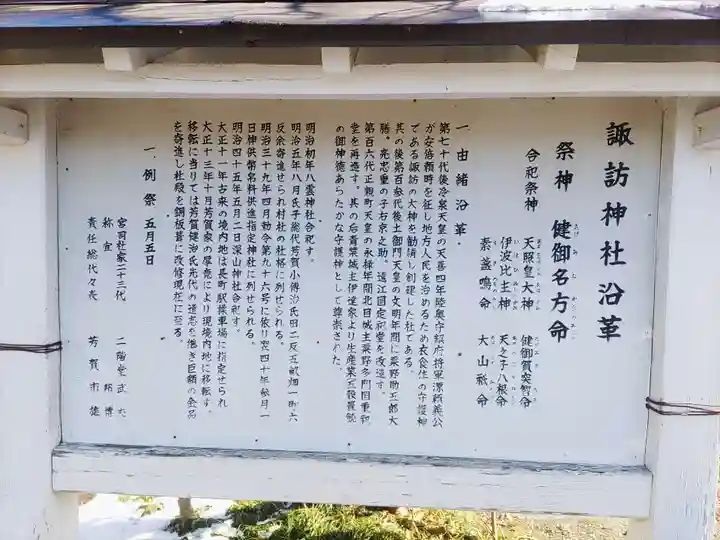 諏訪神社沿革
祭神 健御名方命
合祀祭神
天照皇大神 健御賀突智命
伊波比主神 天之子八根命
素盞嗚命 大山祇命
一、由緒沿革
第七十代後冷泉天皇の天喜四年陸奥守鎮府将軍源頼義公
が安倍頼時を征し地方人民を治めるため衣食住の守護神
である諏訪の大神を勧請し創建した社である。
其の後第百参代後土御門天皇の文明年間に粟野助五郎大
膳。亮忠重の子右京之助。遠江国定祠堂を改造す。
第百六代正親町天皇の永禄年間北目城主粟野多門国重祠
堂を再造す。其の后青葉城主伊達家より生産業五穀養蚕
の御神徳あらたかな守護神として尊崇された。
明治初年八雲神社合祀す。
明治五年八月氏子総代芳賀小傳治氏田二反五畝畑一町六
反余寄進せられ村社の社格に列せられる。
明治三十九年四月勅令第九十六号に依り翌四十年 月一
日神供幣帛料供進指定神社に列せられる。
明治四十五年五月二日深山神社合祀す。
大正十一年古来の境内地は長町駅操車場に指定せられ
大正十三年十月芳賀家の厚意により現境内地に移転す
移転に当りては芳賀健治氏先代の遺志を継ぎ巨額の金品
を寄進し社殿を銅板葺に改修現在に至る。
一、例祭 五月五日
宮司社家二十三代 二階堂武夫
祢宜 邦博
責任総代々表 芳賀市雄